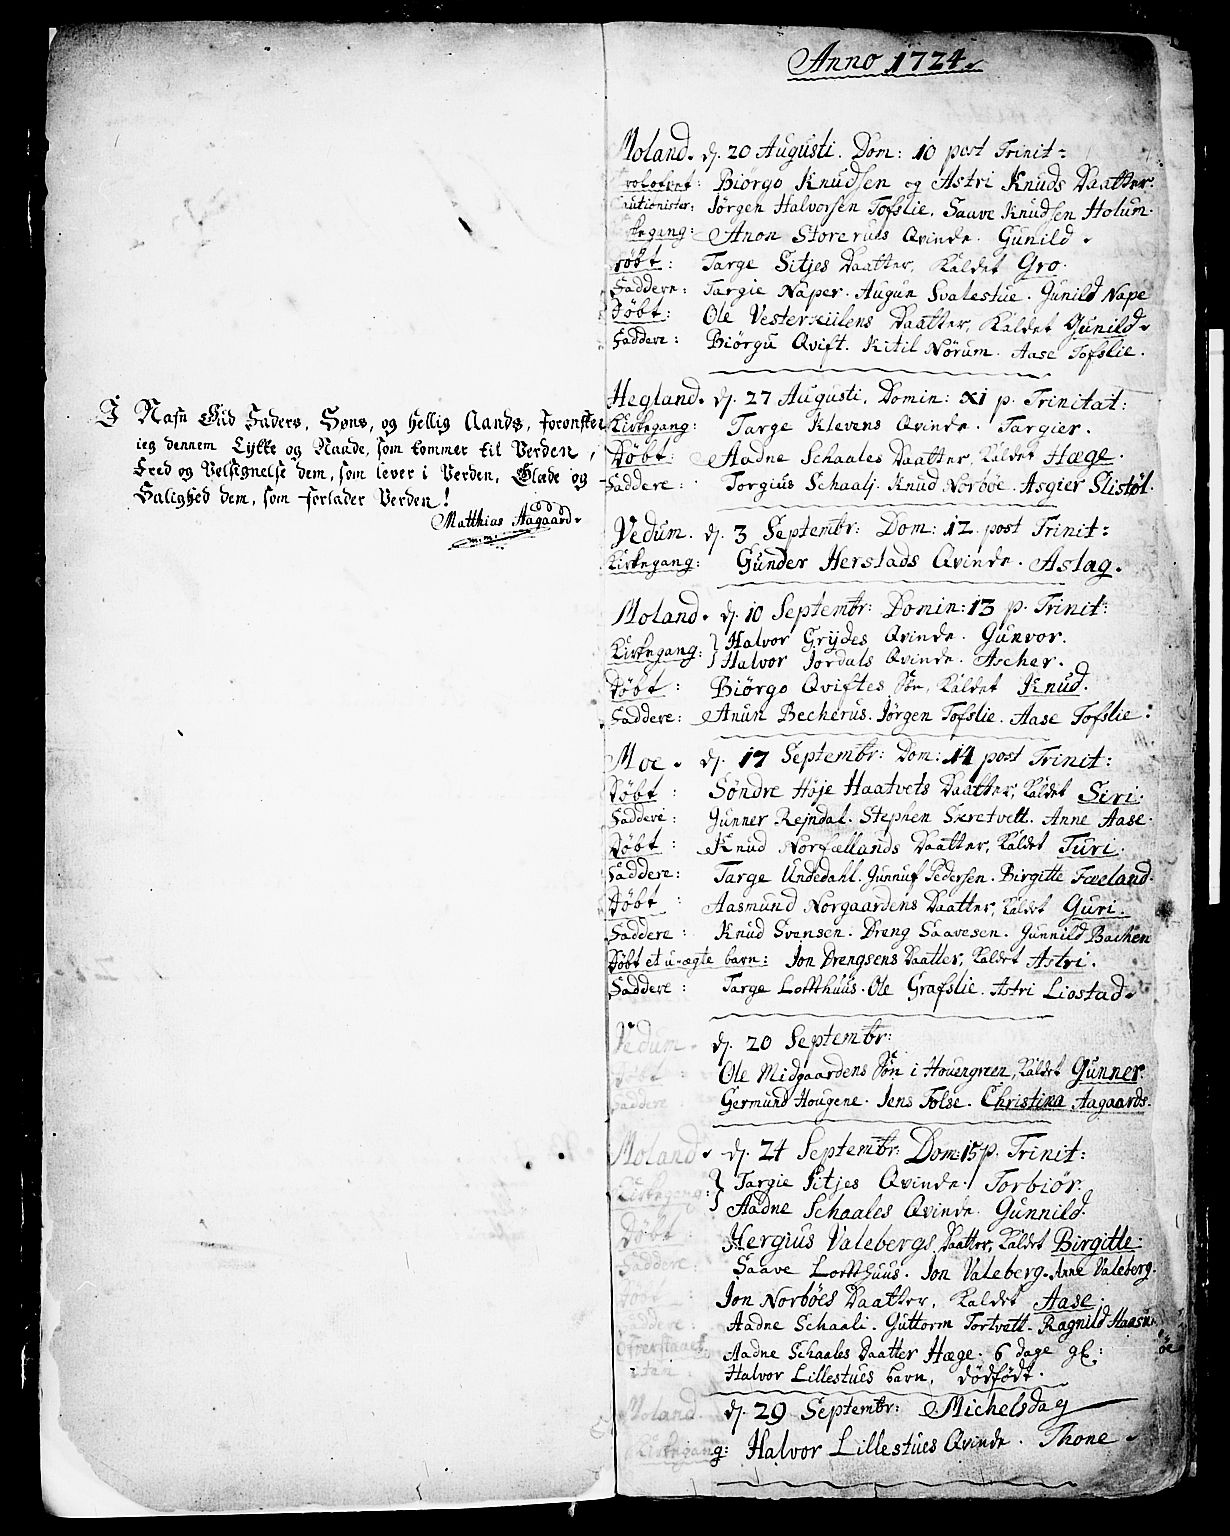 I Nafn Gud Faders, Søns, og Hellig Aands, Forønsker
ieg dennem Lykke og Naade, som kommer til Verden,
Fred og Velsignelse dem, som lever i Verden, Glæde og
Salighed dem, som forlader Verden!
Matthias Aagaard
Anno 1724.
Moland. d. 20 Augusti. Dom: 10 post Trinit:
Trolofvet: Biörgo Knudsen og Astri Knuds Daatter.
Cautionister: Jörgen Halvorsen Tofslie. Saave Knudsen Holum.
Kirkegang: Anon Storeruds Qvinde. Gunild.
Döbt: Targe Sitjes Daatter, kaldet Gro.
Faddere: Targie Naper. Augun Svalestue. Gunild Nape
Döbt: Ole Vesterkiilens Daatter, kaldet Gunild.
Faddere: Biörgu Qvift. Kitil Nørum. Aase Tofslie.
Hegland. d. 27 Augusti, Domin: XI p. Trinitat:
Kirkegang: Targe Klevens Qvinde. Targier.
Döbt: Aadne Schaales Daatter, kaldet Hæge.
Faddere: Torgius Schaali. Knud Norböe. Asgier Slistöl.
Vedum. d. 3 Septembr: Dom: 12 post Trinit:
Kirkegang: Gunder Herstads Qvinde. Aslag.
Moland. d. 10 Septembr: Domin: 13 p. Trinit:
Kirkegang: } Halvor Grydes Qvinde. Gunvor.
Halvor Jordals Qvinde. Ascher.
Döbt: Biörgo Qviftes Sön, kaldet Knud.
Faddere: Anun Becherus. Jörgen Tofslie. Aase Tofslie:
Moe. d. 17 Septembr: Dom: 14 post Trinit:
Döbt: Söndre Höje Haatvets Daatter, kaldet Siri.
Faddere: Gunner Rejndal. Stephen Skretvett. Anne Aase.
Döbt: Knud Norfællands Daatter, kaldet Turi.
Faddere: Targe Undedahl. Gunnuf Pedersen. Birgitte Fæeland.
Döbt: Aasmund Norgaardens Daatter, kaldet Guri.
Faddere: Knud Svensen. Dreng Saavesen. Gunnild Bachen
Döbt et u-ægte barn: Jon Drengsens Daatter, kaldet Astri.
Faddere: Targe Loftthuus. Ole Grafslie. Astri Liostad.
Vedum. d. 20 Septembr:
Döbt: Ole Midgaardens Sön i Houengreen, kaldet Gunner.
Faddere: Germund Hougene. Jens Folse. Christina Aagaards.
Moland. d. 24 Septembr: Dom: 15 p. Trinit:
Kirkegang: } Targie Sitjes Qvinde. Torbiör.
Aadne Schaales Qvinde. Gunnild.
Döbt: Hergius Valebergs Daatter, kaldet Birgitte:
Faddere: Saave Loftthuus. Jon Valeberg. Anne Valeberg.
Döbt: Jon Norböes Daatter, kaldet Aase.
Faddere: Aadne Schaali. Guttorm Tortvett. Ragnild Haasu
Aadne Schaales Daatter Hæge. 6 dage gl:
item: Halvor Lillestues barn, dödfödt.
Moland d. 29 Septembr: Michelsdag
Kirkegang: Halvor Lillestues Qvinde. Thone.